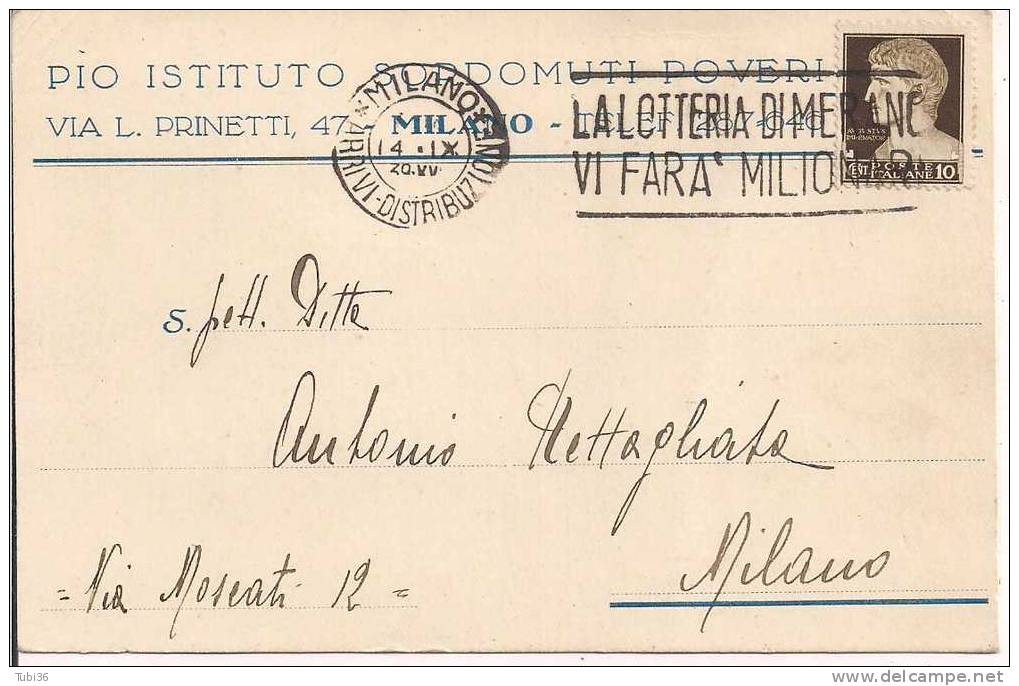 PIO ISTITUTO SORDOMUTI POVERI
VIA L. PRINETTI, 47 - MILANO - TELEF. 287-046
*MILANO*
ARRIVI-DISTRIBUZIONE
14 · IX
LA LOTTERIA DI MERANO
VI FARA' MILIONARI
AVGVSTVS
IMPERATOR
POSTE
ITALIANE 10
S. pett. Ditta
Antonio Mettagliata
= Via Moscati 12 =
Milano
Tubi36
delcampe.net